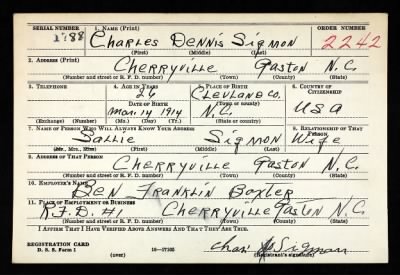 SERIAL NUMBER 1. NAME (Print) ORDER NUMBER
CHARLES DENNIS SIGMON 2242
(First) (Middle) (Last)
2. ADDRESS (Print)
CHERRYVILLE GASTON N.C.
(Number and street or R. F. D. number) (Town) (County) (State)
3. TELEPHONE 4. AGE IN YEARS 5. PLACE OF BIRTH 6. COUNTRY OF CITIZENSHIP
26 CLEVLAND CO.
DATE OF BIRTH (Town or county)
Mar. 14 1914 N.C. USA
(Exchange) (Number) (Mo.) (Day) (Yr.) (State or country)
7. NAME OF PERSON WHO WILL ALWAYS KNOW YOUR ADDRESS 8. RELATIONSHIP OF THAT PERSON
SALLIE SIGMON WIFE
(Mr., Mrs., Miss) (First) (Middle) (Last)
9. ADDRESS OF THAT PERSON
CHERRYVILLE GASTON N.C.
(Number and street or R. F. D. number) (Town) (County) (State)
10. EMPLOYER'S NAME
BEN FRANKLIN BOXTER
11. PLACE OF EMPLOYMENT OR BUSINESS
R.F.D. #1 CHERRYVILLE GASTON N.C.
(Number and street or R. F. D. number) (Town) (County) (State)
I AFFIRM THAT I HAVE VERIFIED ABOVE ANSWERS AND THAT THEY ARE TRUE.
REGISTRATION CARD
D. S. S. Form 1 (over) Sigmon
(Registrant's signature)